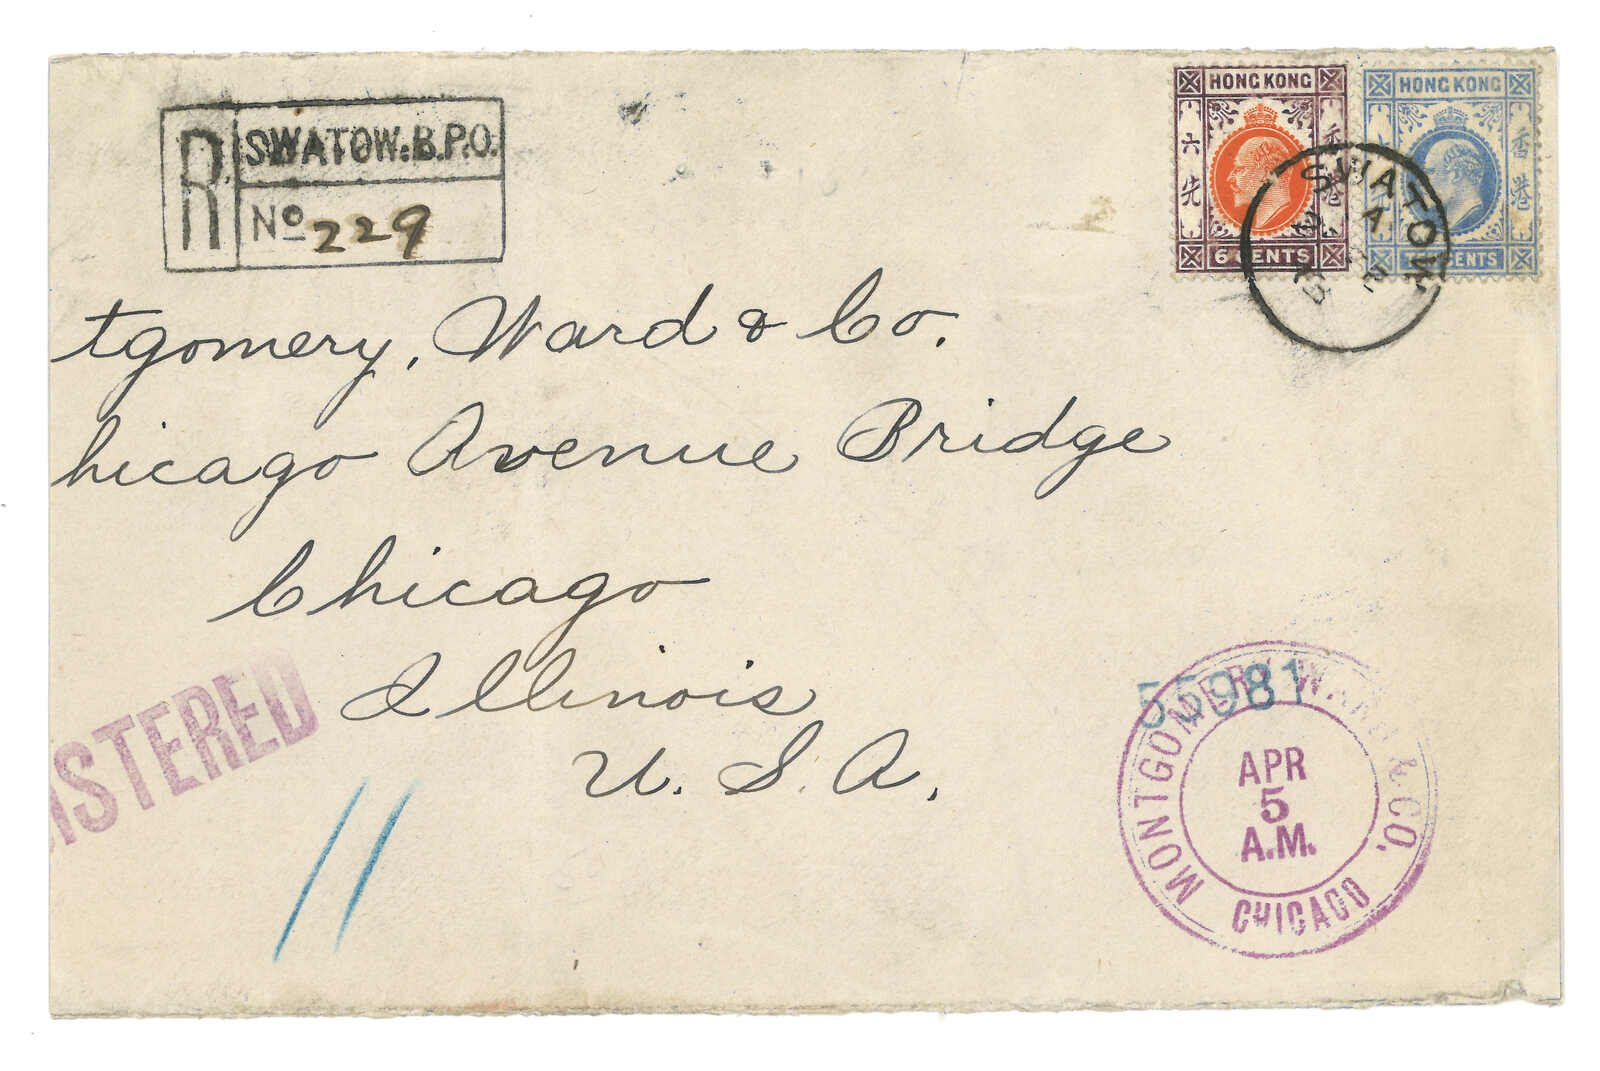 R
SWATOW.B.P.O.
No 229
HONG KONG
六
先
香
港
6 CENTS
HONG KONG
香
港
CENTS
SWATOW
A
tgomery, Ward & Co.
hicago Avenue Bridge
Chicago
Illinois
U. S. A.
ISTERED
11
55981
MONTGOMERY WARD & CO.
APR
5
A.M.
CHICAGO